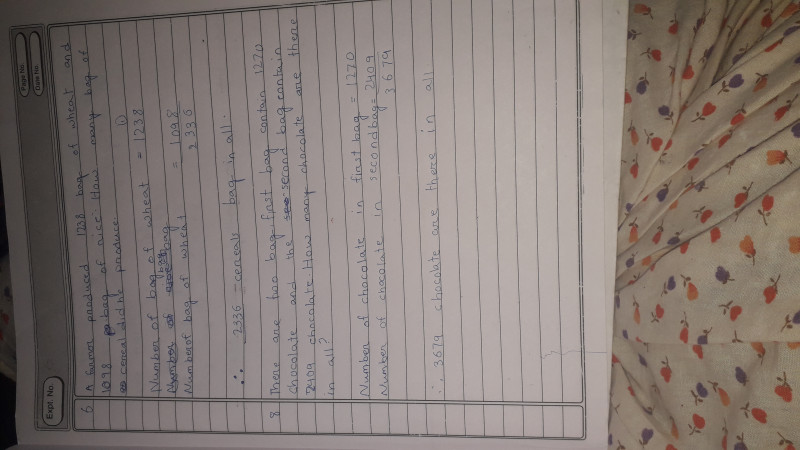 Page No.
Date No.
Expt. No.
6 A farmer produced 1238 bag of wheat and
1098 bag of rice. How many bag of
cereal did he produce
Number of bag of wheat = 1238
Number of bag of wheat = 1098
2336
∴ 2336 - cereals bag in all.
8 There are two bag. first bag contain 1270
chocolate and the second bag contain
2409 chocolate How many chocolate are there
in all?
Number of chocolate in first bag = 1270
Number of chocolate in second bag = 2409
3679
∴ 3679 chocolate are there in all